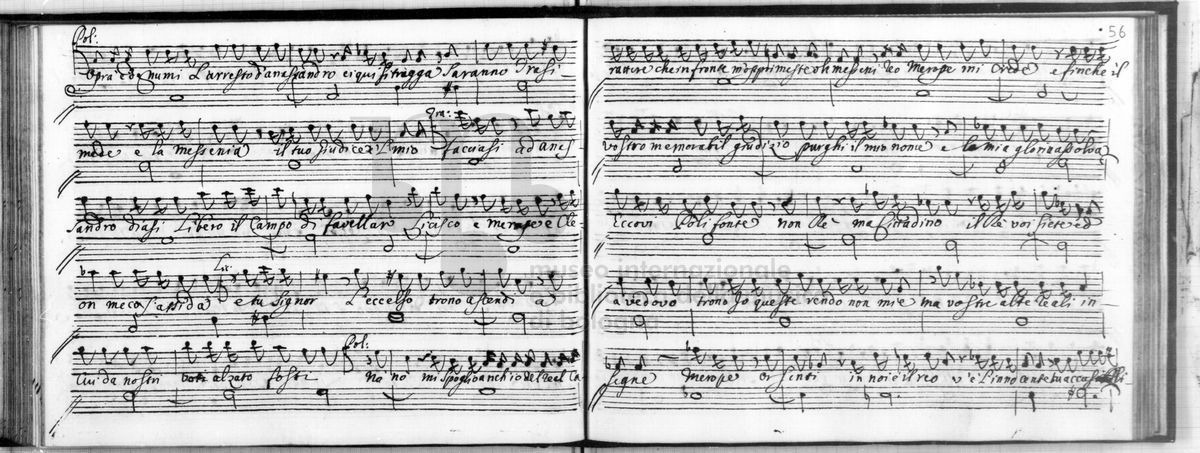 Pol:
numi L'arresto d'anassandro e i qui si tragga Saranno Tresi-
mede e la Messenia il tuo Giudice e'l mio facciasi ad anas-
Tra:
sandro diasi Libero il Campo di favellar Licisco e merope e Cle-
on meco s'assida e tu Signor L'eccelso trono ascendi a
Lic:
Cui da nostri voti alzato fosti No no mi spoglio anch'io del Real Ca-
Pol:
56
rattere che in fronte m'esprimeste o messeni reo Merope mi Crede e finche il
vostro memorabil giudizio purghi il mio nome e la mia gloria assolva
Eccovi Polifonte non Rè ma Cittadino il Rè voi siete ed
a vedovo trono Io queste rendo non mie ma vostre alte Reali in-
segne Merope or senti in noi è il reo v'è l'innocente tu accusi
museo internazionale
di bologna